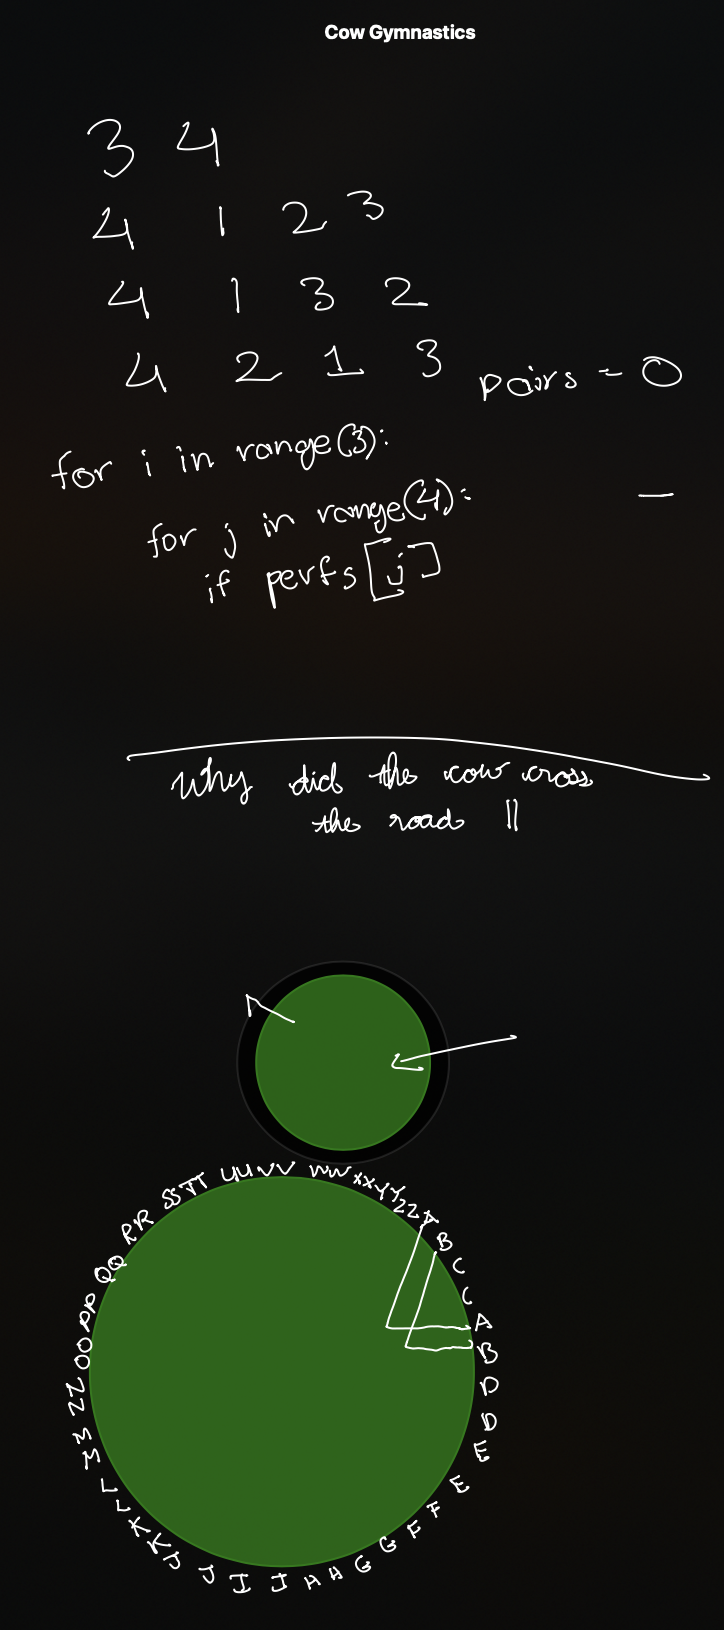 Cow Gymnastics
3 4
4 1 2 3
4 1 3 2
4 2 1 3
pairs = 0
for i in range(3):
for j in range(4):
if perfs[j]
Why did the cow cross
the road II
A B C C A B D D E E F F G G H H I I J J K K L L M M N N O O P P Q Q R R S S T T U U V V W W X X Y Y Z Z